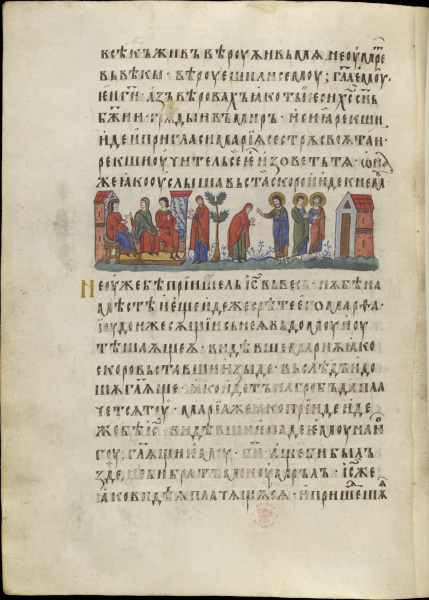 всѣкъ живъ вѣроуѧи въ мѧ не оумре
въ вѣкы · вѣроуеши ли семоу; гл҃а емоу ·
еи ги҃ · азъ вѣровахъ ꙗко ты еси хс҃ сн҃ъ
бж҃ии · грѧдыи въ миръ · и сиа рекши
иде и пригласи марїѫ сестрѫ своѫ таи ·
рекши оучитель се е и зоветъ тѧ · она
же ꙗко оуслыша въста скоро и иде к немоу
Не оу же бѣ пришелъ іс҃ въ весь · нѫ бѣ на
мѣстѣ идеже срѣте его марѳа ·
їоуден же сѫщїи съ неѫ въ домоу и оу
тѣшаѫщеѫ · видѣвше марїѫ ꙗко
скоро въставши изыде · въ слѣдъ идо
шѫ гл҃ѫще · ꙗко идетъ на гробъ да пла
четсѧ тоу · марїа же ꙗко прїиде иде
же бѣ іс҃ · видѣвши и паде емоу на но
гоу гл҃ѫщи емоу · ги҃ · аще би былъ
зде не би братъ ми оумрълъ · іс҃ же
ꙗко видѣ ѫ плачѫщѫсѧ · и пришеш̾ѫѧ